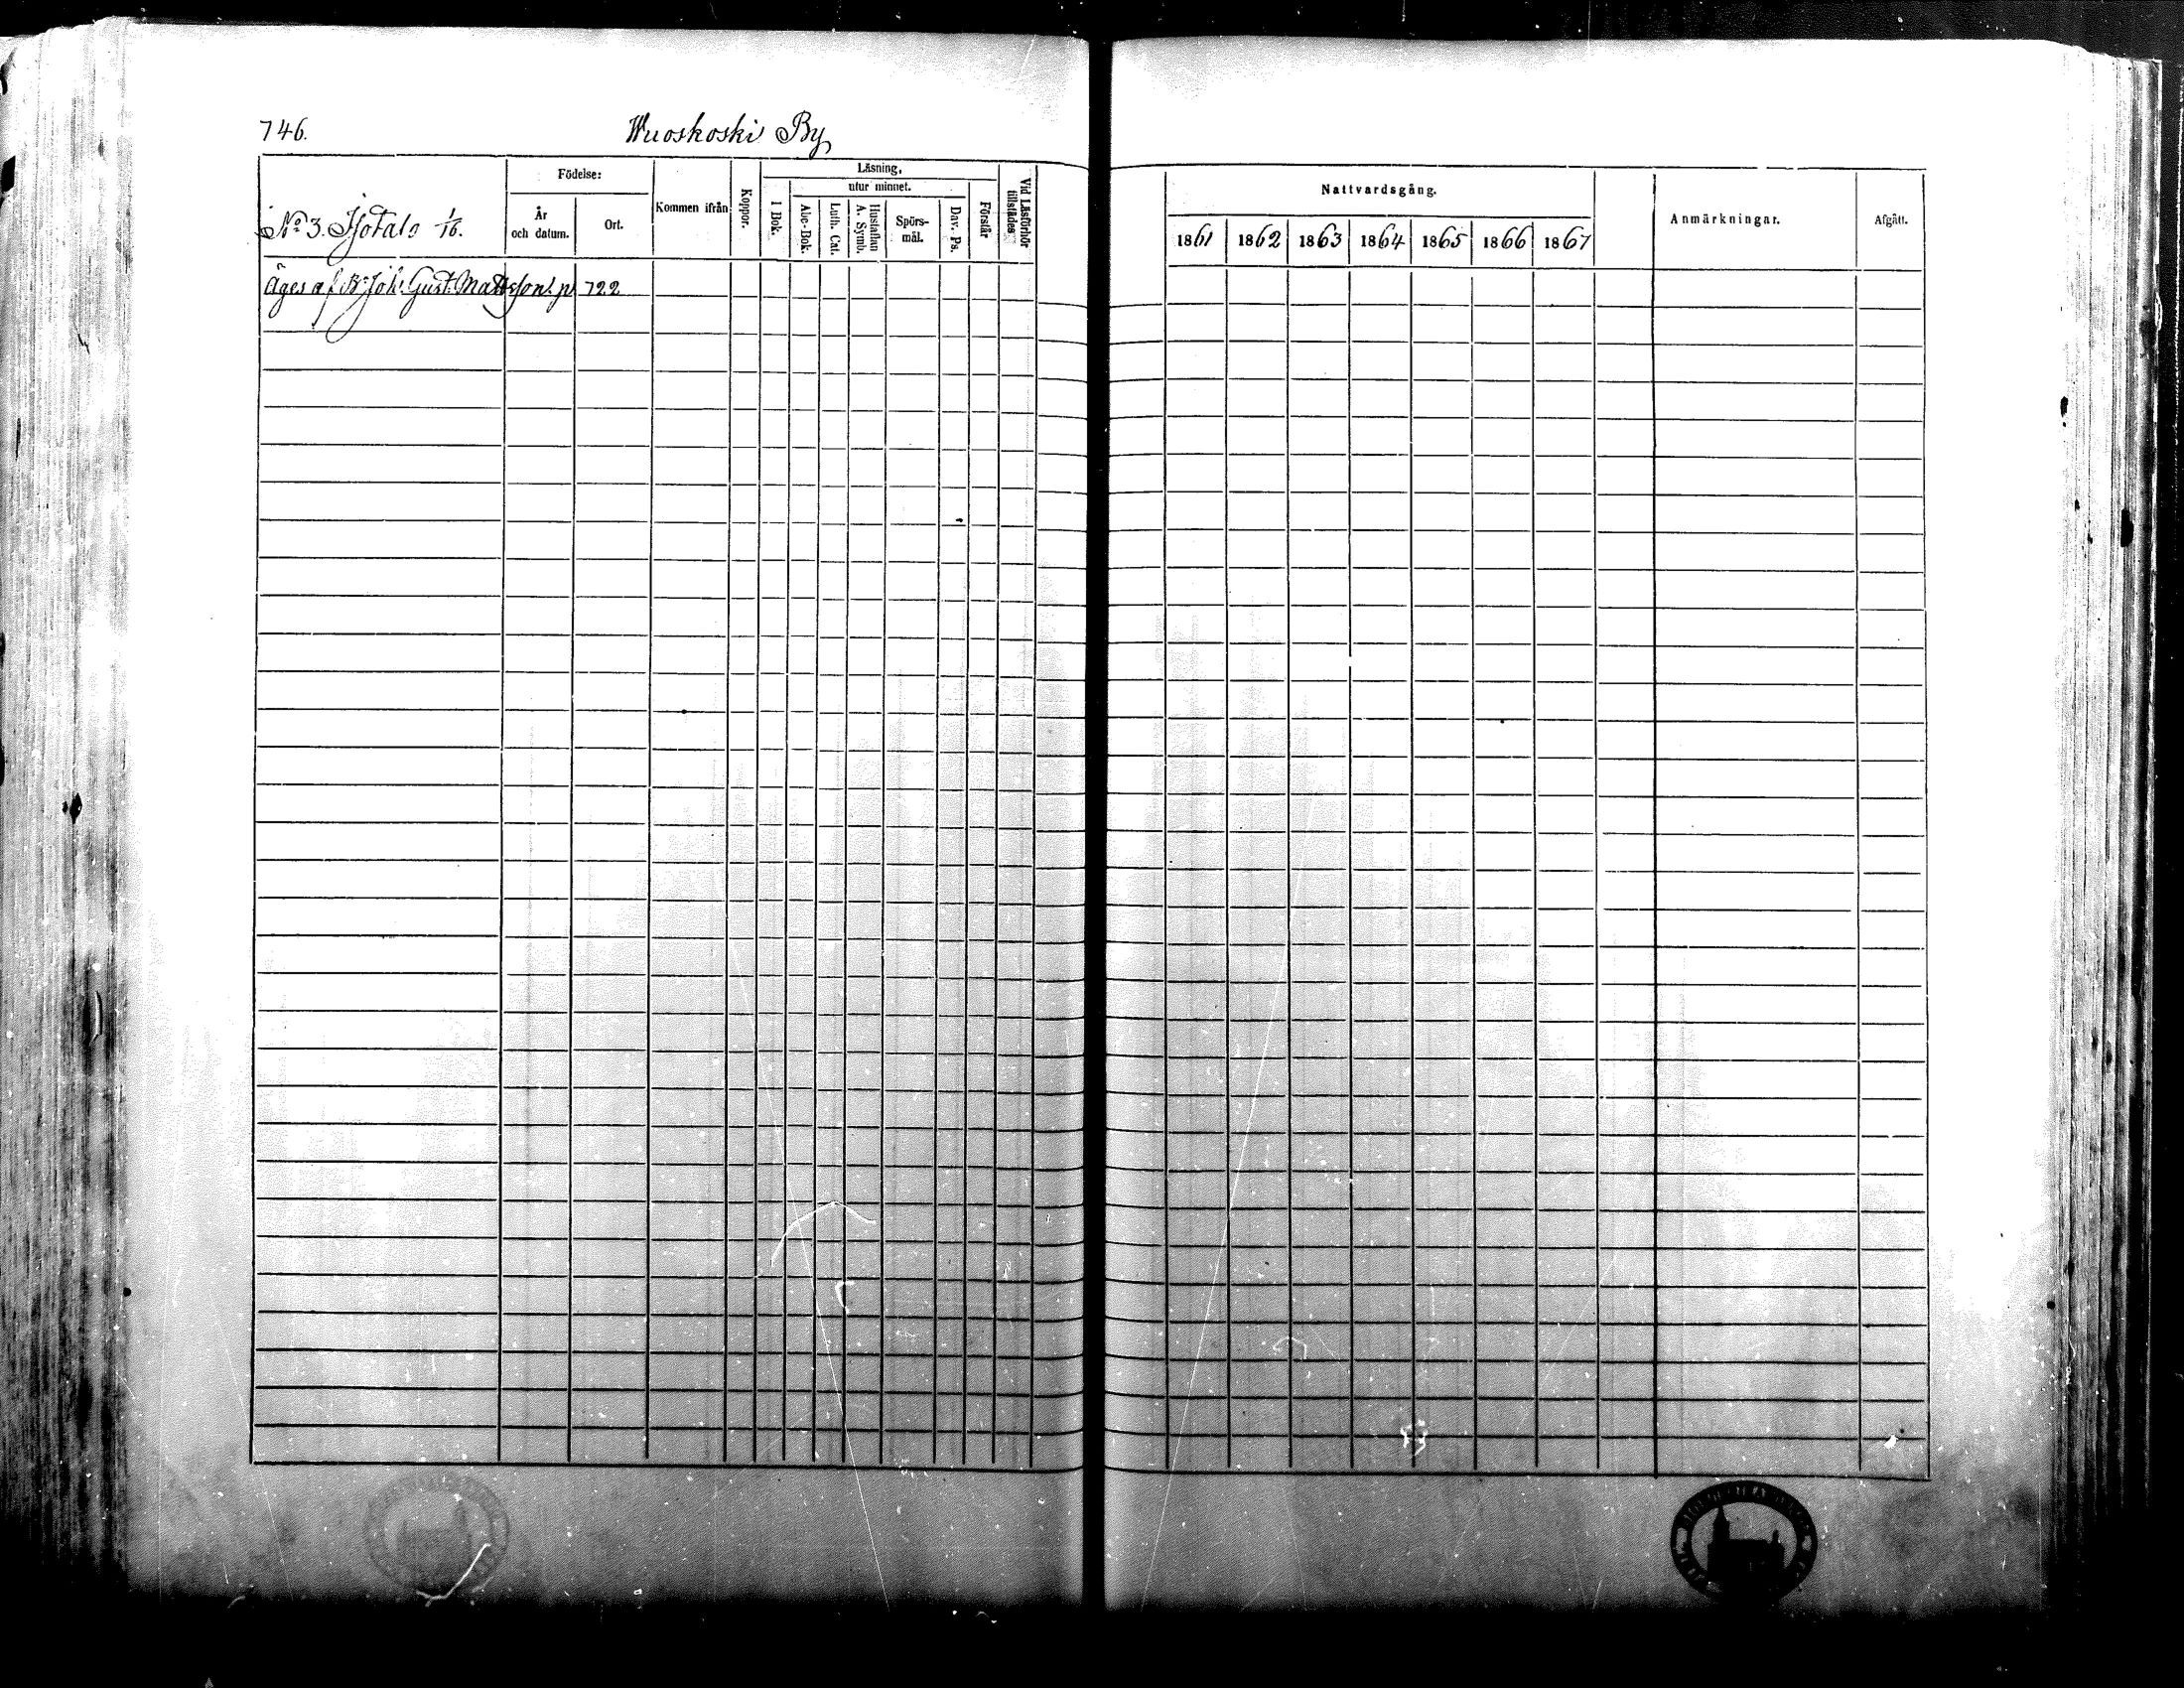 746.
Wuoskoski By
No 3. Isotalo 1/16.
Födelse:
År
och datum.
Ort.
Kommen ifrån
Koppor.
Läsning,
utur minnet.
I Bok.
Abc-Bok.
Luth. Cat.
Hustaflan
A. Symb.
Spörs-
mål.
Dav. Ps.
Förstår
Vid Läsförhör
tillstädes
Nattvardsgång.
1861 1862 1863 1864 1865 1866 1867
Anmärkningar.
Afgått.
Äges af Bn Joh. Gust. Mattsson p. 722